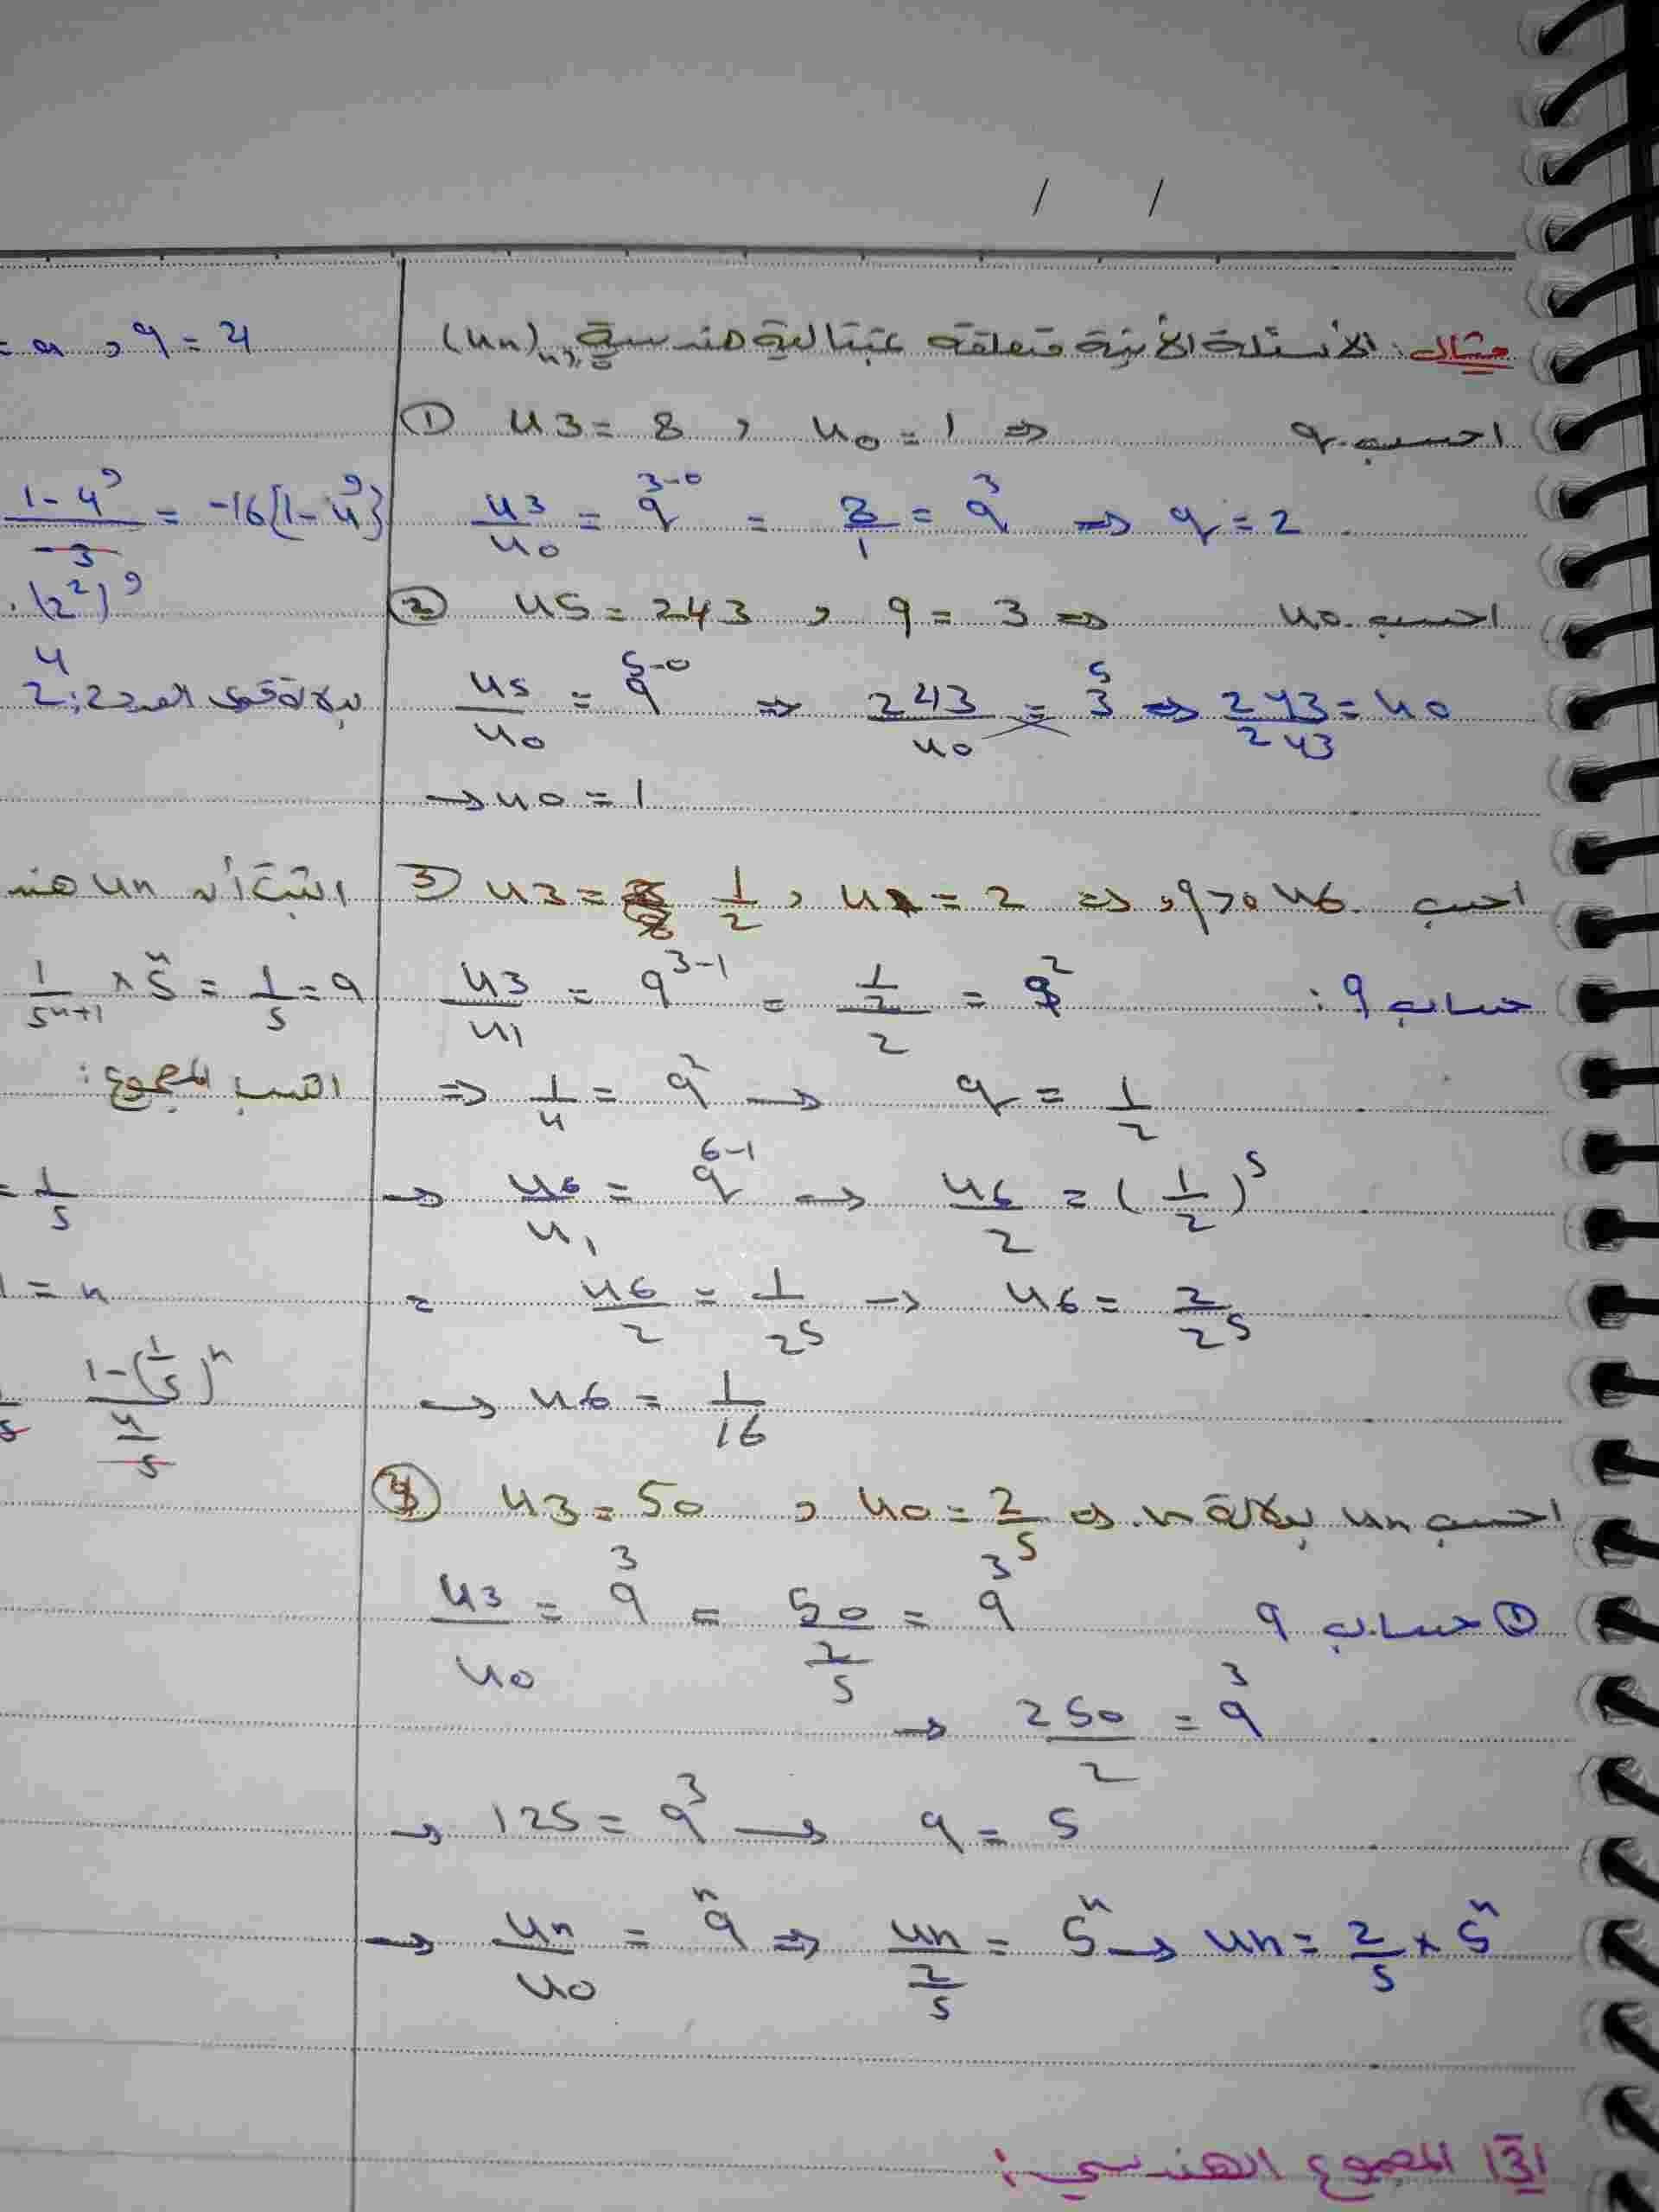 / /
مثال: الأسئلة الآتية متعلقة بمتتالية هندسية (un)n≥0
① u3 = 8 , u0 = 1 ⇒ احسب q
u3/u0 = q^(3-0) = 8/1 = q^3 ⇒ q = 2
② u5 = 243 , q = 3 ⇒ احسب u0
u5/u0 = q^(5-0) ⇒ 243/u0 = 3^5 ⇒ 243/243 = u0
→ u0 = 1
③ u3 = 1/2 , u1 = 2 ⇒ احسب u6 , q>0
حساب q: u3/u1 = q^(3-1) = (1/2)/2 = q^2
⇒ 1/4 = q^2 → q = 1/2
→ u6/u1 = q^(6-1) → u6/2 = (1/2)^5
= u6/2 = 1/2^5 → u6 = 2/2^5
→ u6 = 1/16
④ u3 = 50 , u0 = 2/5 ⇒ احسب un بدلالة n.
① حساب q u3/u0 = q^3 = 50/(2/5) = q^3
→ 250/2 = q^3
→ 125 = q^3 → q = 5
→ un/u0 = q^n ⇒ un/(2/5) = 5^n → un = 2/5 × 5^n
3| المجموع الهندسي:
= a , q = 4
(1-4^9)/-3 = -16{1-4^9}
.(2^2)^9
بدلالة قوى العدد 2:
اثبت أن un
1/5^(n+1) × 5^n = 1/5 = q
المجموع:
= 1/5
1 = n
(1-(1/5)^n)/(4/5)